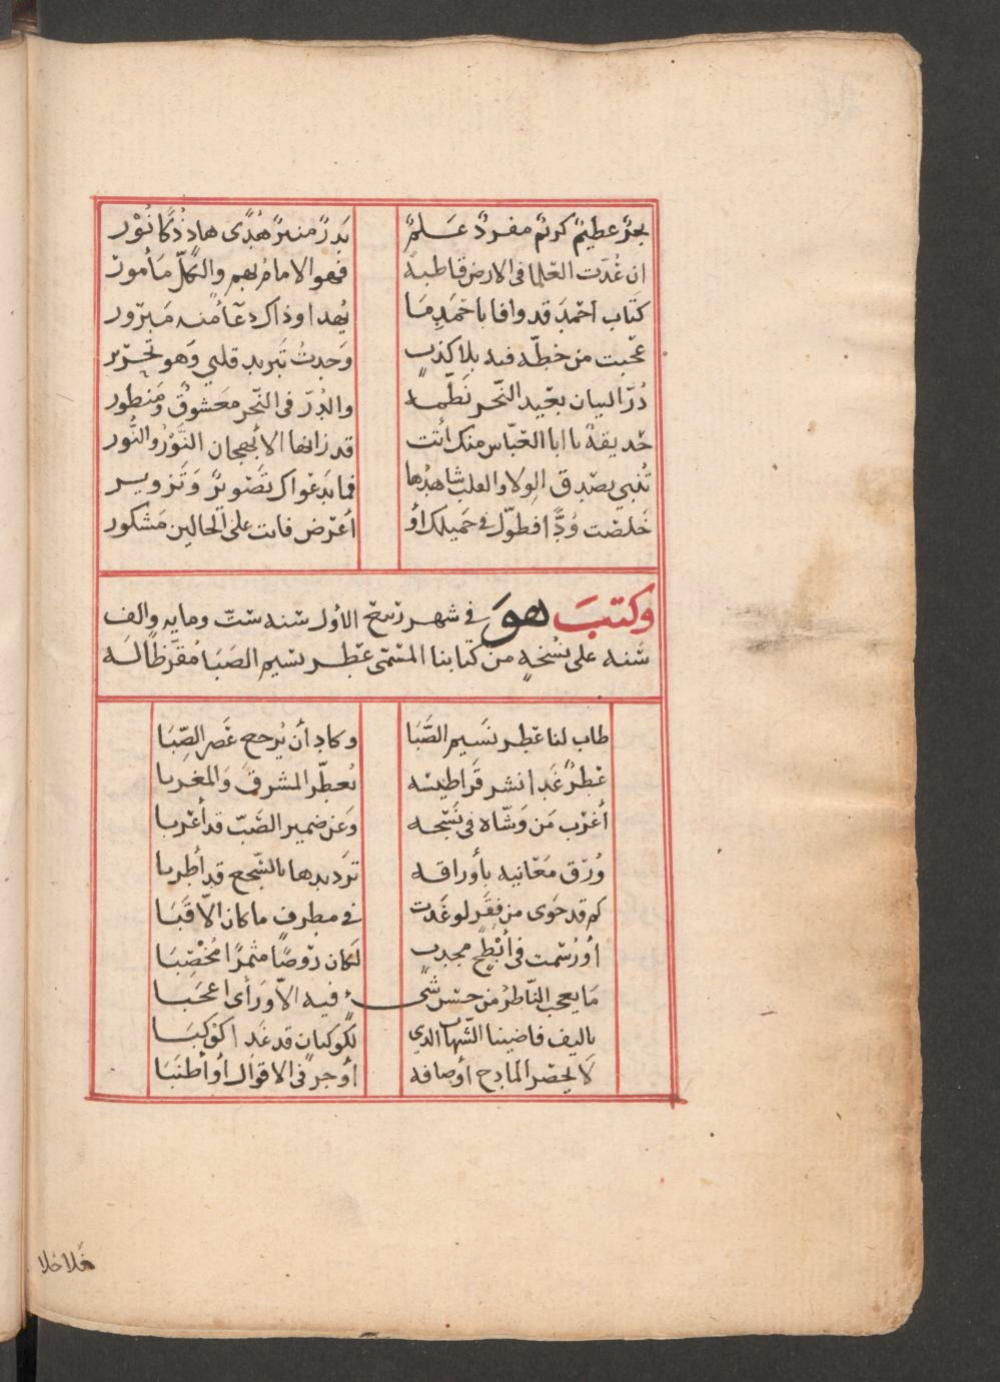 بحرٌ عظيمٌ كريمٌ مفردٌ عَلَمٌ بَدرٌ منيرٌ هُدًى هادٍ ذُكًا نُوْر
ان عُدّت العُلما فى الارض قاطبةً فهو الامامُ لهم والكلّ مَأمورُ
كتاب احمَد قد وافا با حمَدِ مَا يُهدا وذاك دعَآءٌ منه مَبرُور
عجبت من خطّه فيه بلا كذبٍ وَجدتُ تَبريد قلبي وَهو تحرير
دُرّ البيان بجيد النّحر نَظّمه والدُرّ فى النّحر معَشوقٌ وَمَنظور
حَديقةٌ يا ابا العبّاس منك أتت قد زانها الابهجان النَّوْرُ والنُّور
تُنبي بصِدق الوِلا والقلب شاهدُها فما بدَعواك تَصْويرٌ وَتَزوير
خَلصت وُدًّا فطوّل في جَميلك أو أعرض فانت على الحالين مَشكور
وكتبَ هوَ في شهر ربيع الأول سَنه ستّ ومايه والف
سَنه على نُسخةٍ من كتابنا المسَمّى عِطر نسَيم الصَبَا مُقَرّظًا لَه
طاب لنا عطر نَسَيم الصَّبَا وكاد أن يُرجع عَصر الصِّبَا
عِطرٌ غَدا نشر قَراطيسه يُعطّر المشرقَ وَالمغربا
أغرَب مَن وَشّاه فى نَسجه وَعَن ضمير الصَبّ قد أعْربا
وُرّق مَعَانيه بأوراقه تَرديدها بالسّجع قد أطربا
كم قد حَوى من فِقَرٍ لو غَدت في مطرفٍ ما كان الاّ قَبَا
أوْ رُسّمت فى أبْطحٍ مجدبٍ لكان رَوضًا مثمرًا مُخْصِبَا
مَا يعجب النّاظرُ من حسْن شىءٍ فيه الاّ وَرَأى اعجَبا
تاليف قاضينا الشّهاب الذي لكوكبانٍ قد غَدا كوكبَا
لَا يحصر المادح أوصافه أوجز فى الاقوال أو أطنَبَا